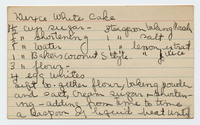 White Cake
cup sugar - 3 teaspoon baking powder
" shortening 1 " salt
" water 1 " lemon extract
1 " Baker's coconut S. style. " juice
3 " flour -
4 egg whites
Sift together flour, baking powder
and salt, cream sugar - shorten-
ing - adding from time to time
a teaspoon of liquid - beat until